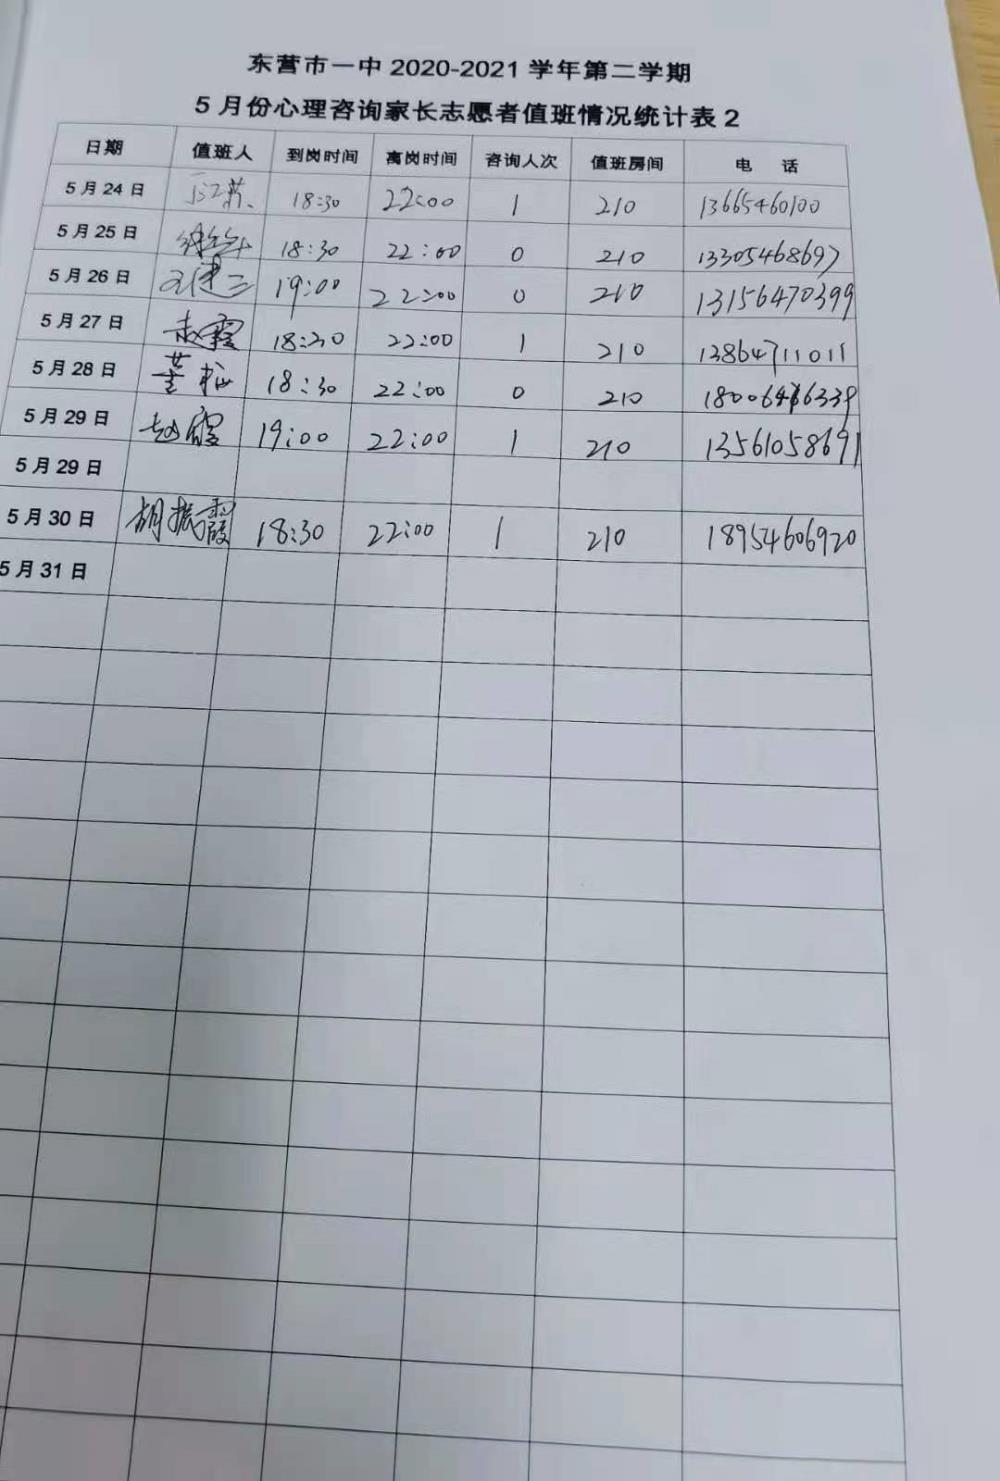 东营市一中 2020-2021 学年第二学期
5 月份心理咨询家长志愿者值班情况统计表 2
日期 值班人 到岗时间 离岗时间 咨询人次 值班房间 电 话
5 月 24 日 18:30 22:00 1 210 13665460100
5 月 25 日 18:30 22:00 0 210 13305468697
5 月 26 日 19:00 22:00 0 210 13156470399
5 月 27 日 18:30 22:00 1 210 13864711011
5 月 28 日 18:30 22:00 0 210
5 月 29 日 赵霞 19:00 22:00 1 210 13561058691
5 月 29 日
5 月 30 日 胡振霞 18:30 22:00 1 210 18954606920
5 月 31 日